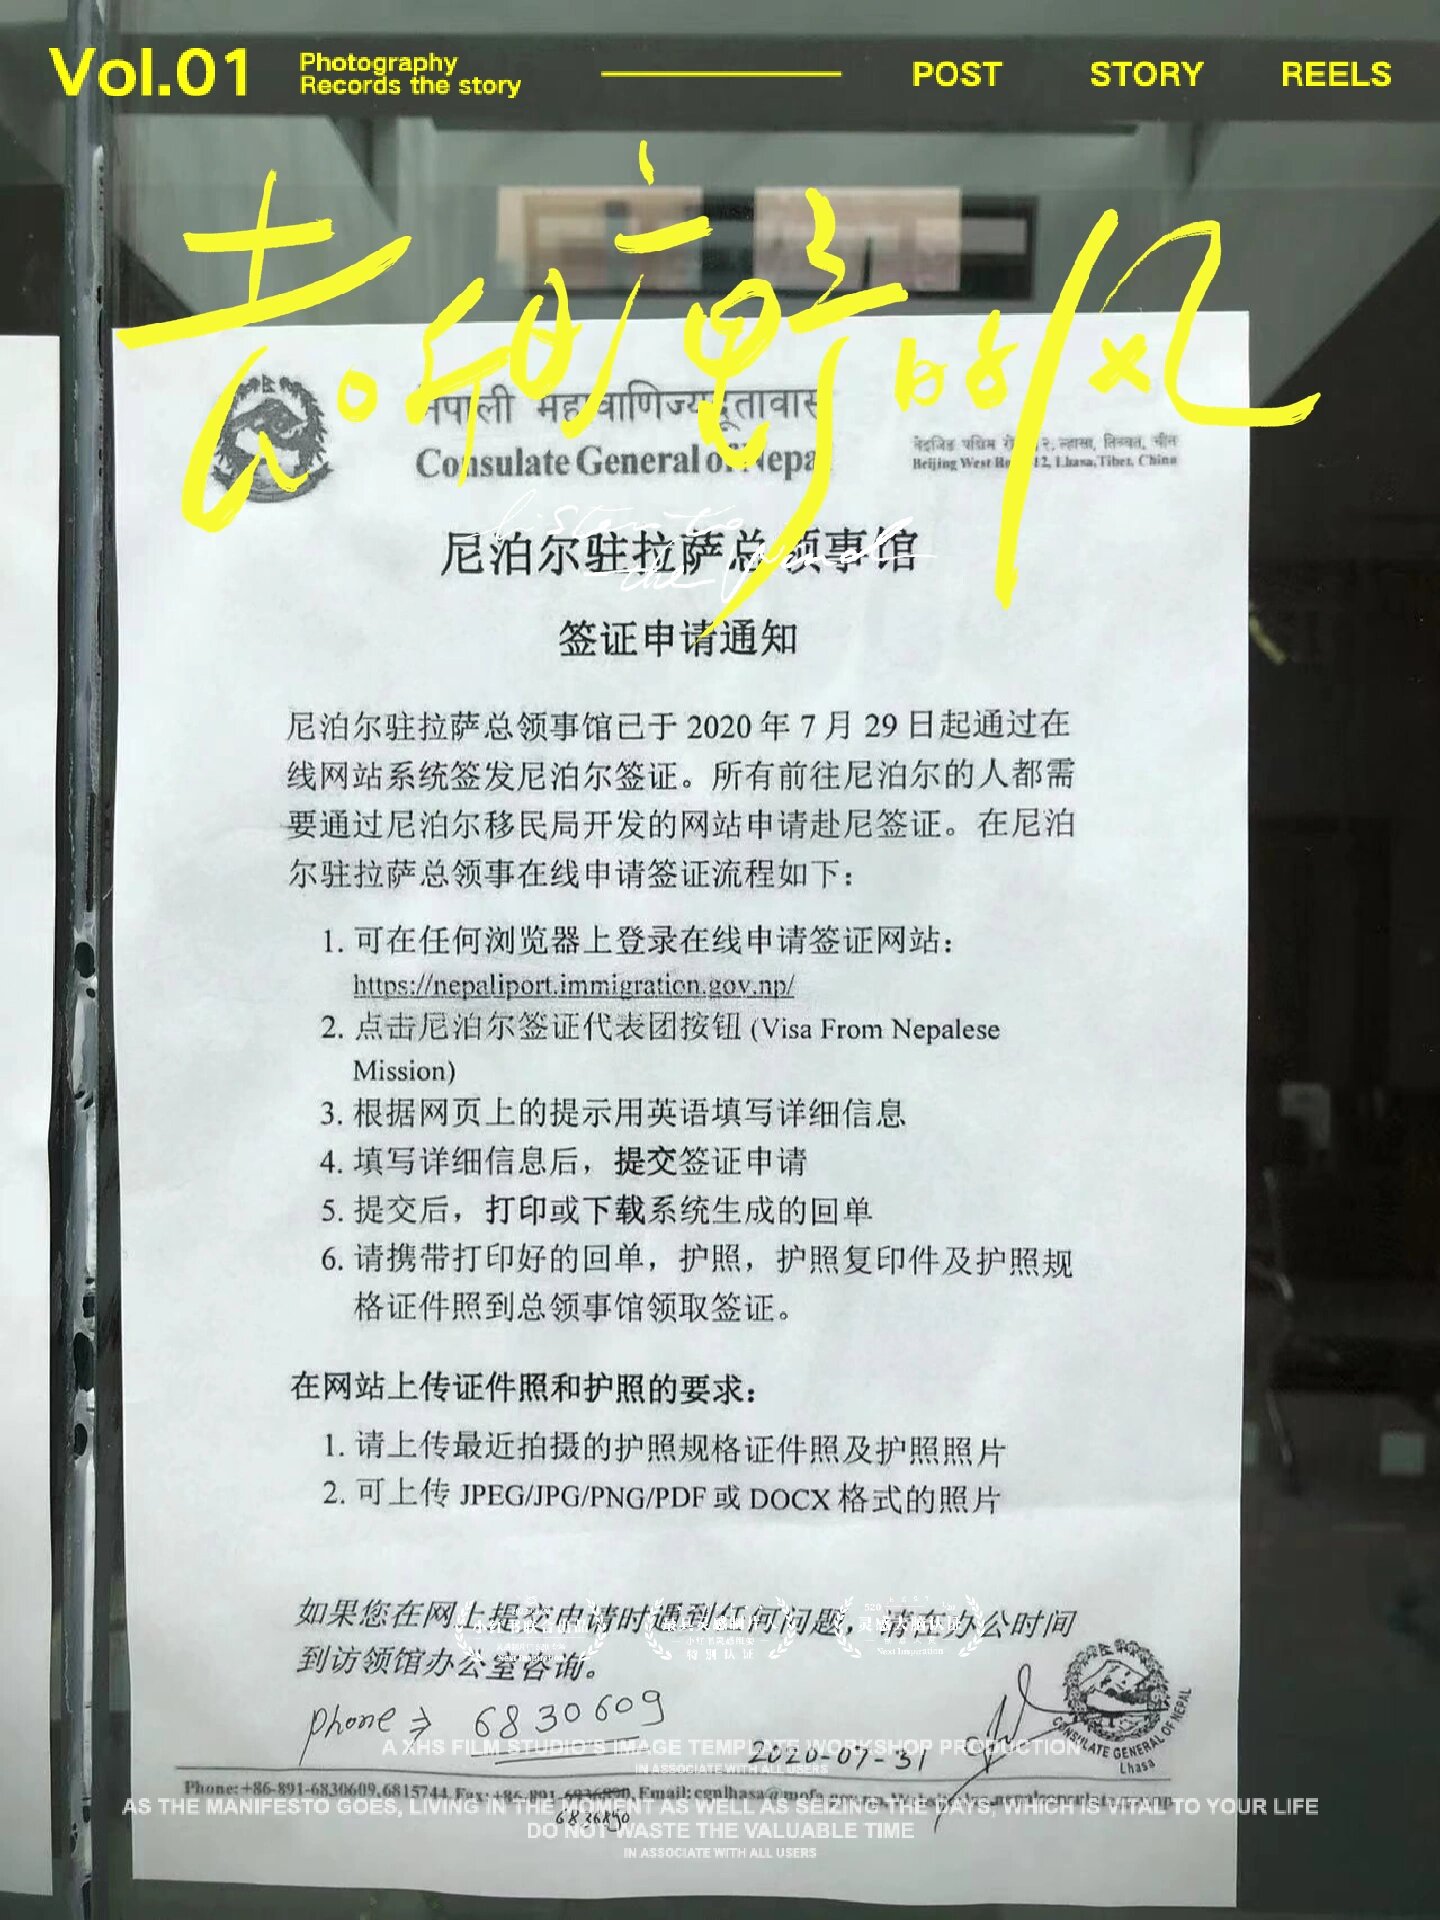 Vol.01
Photography
Records the story
POST
STORY
REELS
去听旷野的风
listen to
the wind
नेपाली महावाणिज्यदूतावास
Consulate General of Nepal
ल्हासा, तिब्बत, चीन
Beijing West Road 12, Lhasa, Tibet, China
尼泊尔驻拉萨总领事馆
签证申请通知
尼泊尔驻拉萨总领事馆已于 2020 年 7 月 29 日起通过在
线网站系统签发尼泊尔签证。所有前往尼泊尔的人都需
要通过尼泊尔移民局开发的网站申请赴尼签证。在尼泊
尔驻拉萨总领事在线申请签证流程如下：
1. 可在任何浏览器上登录在线申请签证网站：
https://nepaliport.immigration.gov.np/
2. 点击尼泊尔签证代表团按钮 (Visa From Nepalese
Mission)
3. 根据网页上的提示用英语填写详细信息
4. 填写详细信息后，提交签证申请
5. 提交后，打印或下载系统生成的回单
6. 请携带打印好的回单，护照，护照复印件及护照规
格证件照到总领事馆领取签证。
在网站上传证件照和护照的要求：
1. 请上传最近拍摄的护照规格证件照及护照照片
2. 可上传 JPEG/JPG/PNG/PDF 或 DOCX 格式的照片
如果您在网上提交申请时遇到任何问题，请在办公时间
到访领馆办公室咨询。
phone ⇒ 6830609
2020-07-31
CONSULATE GENERAL OF NEPAL
Lhasa
A XHS FILM STUDIO'S IMAGE TEMPLATE WORKSHOP PRODUCTION
IN ASSOCIATE WITH ALL USERS
Phone: +86-891-6830609, 6815744, Fax: +86-891-6836890, Email: cgnlhasa@mofa.gov.np
6836890
AS THE MANIFESTO GOES, LIVING IN THE MOMENT AS WELL AS SEIZING THE DAYS, WHICH IS VITAL TO YOUR LIFE
DO NOT WASTE THE VALUABLE TIME
IN ASSOCIATE WITH ALL USERS